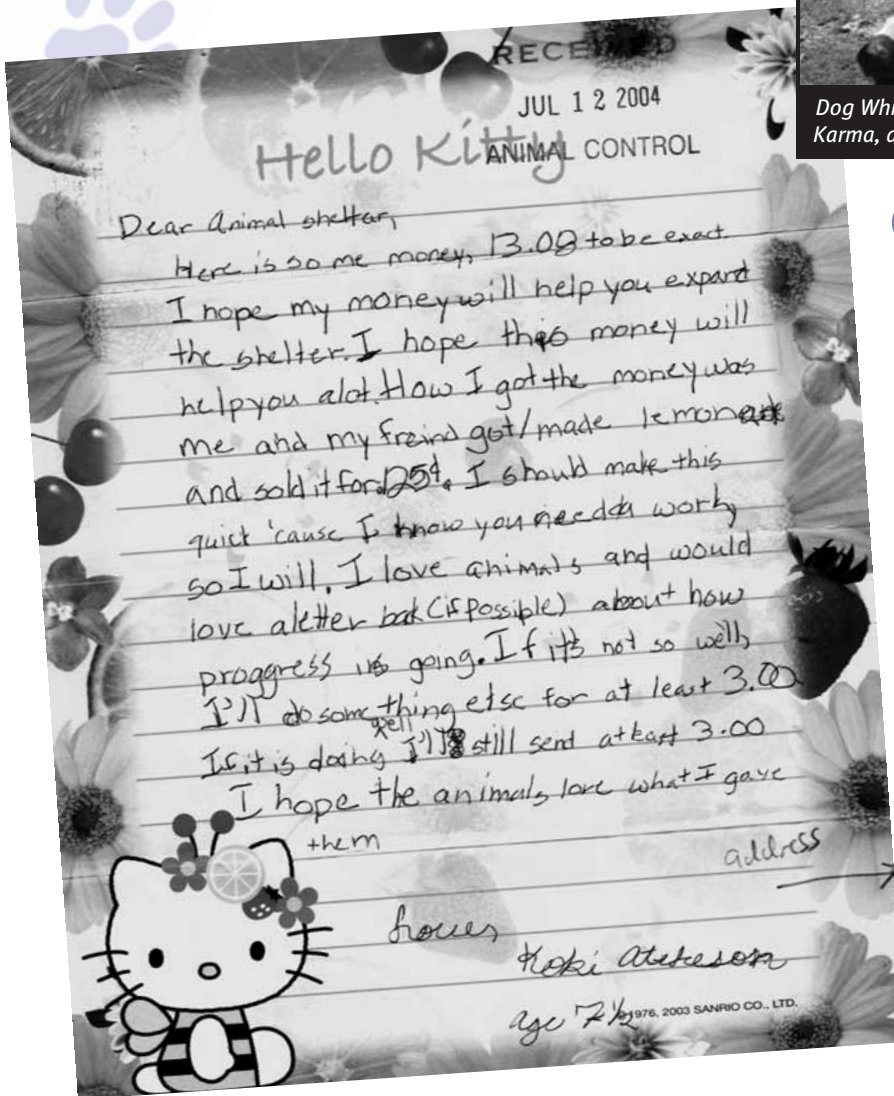 RECEIVED
JUL 12 2004
ANIMAL CONTROL
Hello Kitty
Dog Whi
Karma, a
Dear Animal shelter,
Here is so me money, 13.08 to be exact
I hope my money will help you expand
the shelter. I hope this money will
help you alot. How I got the money was
me and my freind got/made lemonade
and sold it for .25¢. I should make this
quick 'cause I know you needda work,
so I will. I love animals and would
love aletter bak (if possible) about how
proggress is going. If it's not so well,
I'll do something else for at least 3.00
If it is doing well I'll still sent at least 3.00
I hope the animals love what I gave
them
address
Loves,
Koki
age 7 ½
1976, 2003 SANRIO CO., LTD.